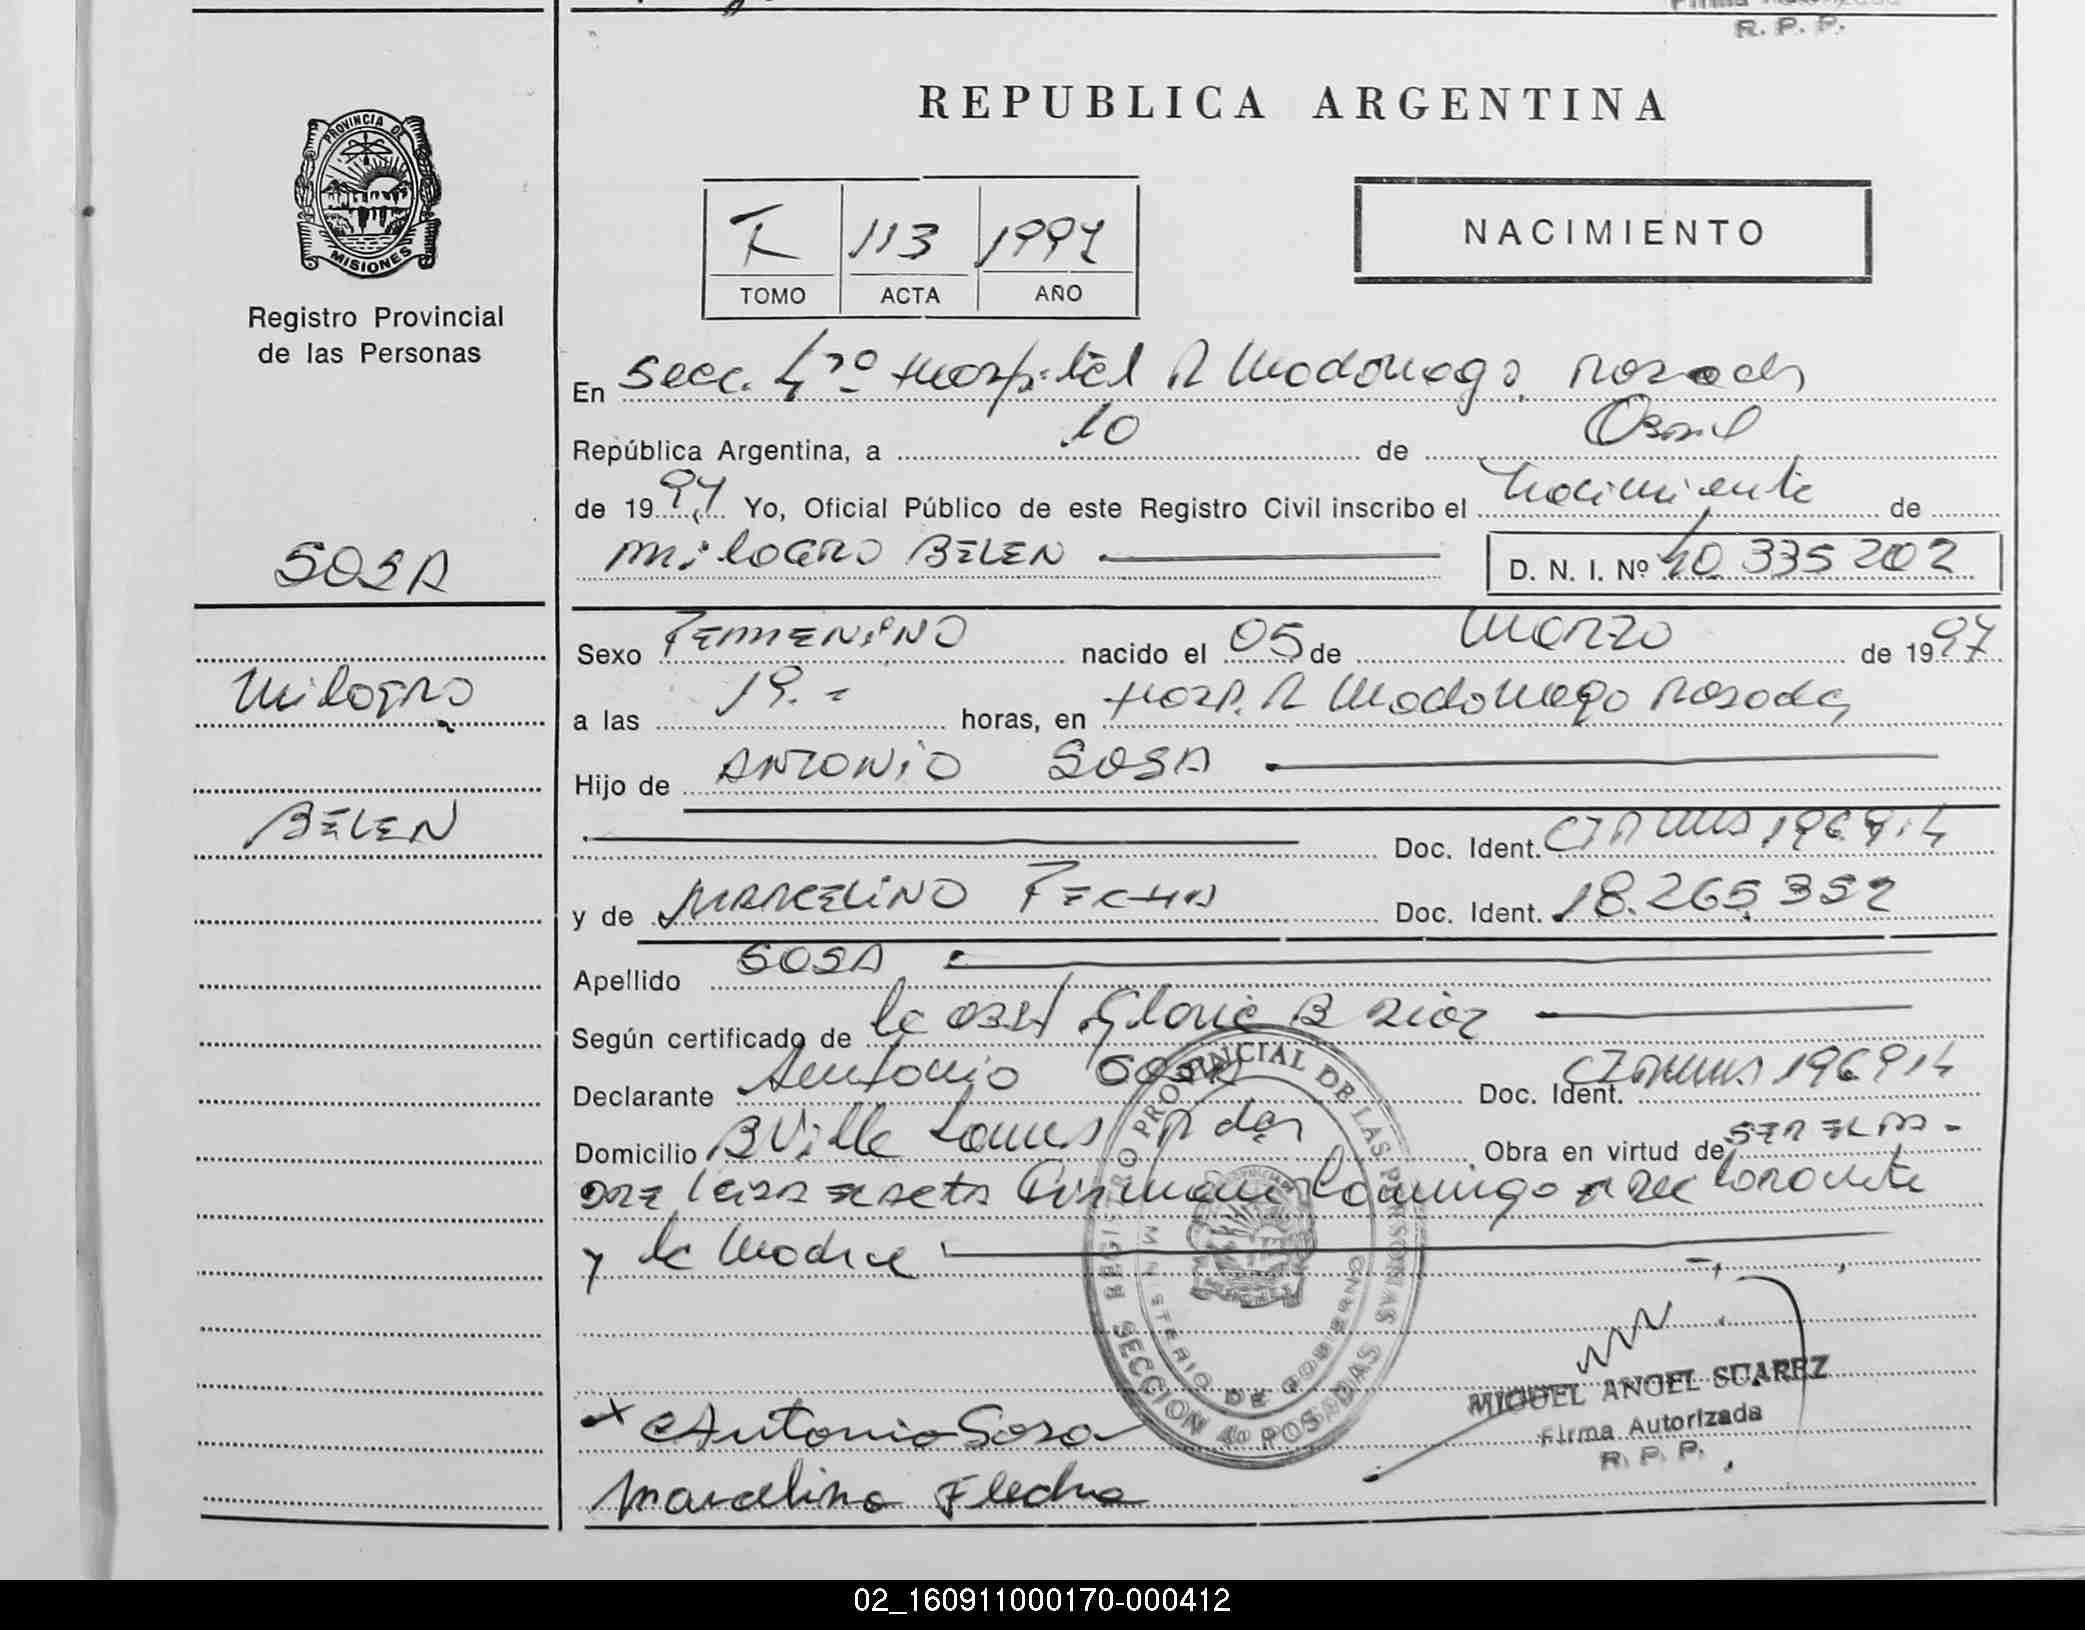 R. P. P.
PROVINCIA DE
MISIONES
Registro Provincial
de las Personas
REPUBLICA ARGENTINA
113 1997
TOMO ACTA AÑO
NACIMIENTO
En Secc. 4ro Hospital R Madariaga Posadas
República Argentina, a 10 de Abril
de 1997 Yo, Oficial Público de este Registro Civil inscribo el Nacimiento de
SOSA
MilAGRO BELEN D. N. I. Nº 40.335202
Sexo FEMENINO nacido el 05 de Marzo de 1997
Milagro
a las 19.= horas, en Hosp. R Madariaga Posadas
Hijo de ANTONIO SOSA
BELEN
Doc. Ident. 196914
y de MARCELINA Doc. Ident. 18.265.352
Apellido SOSA
Según certificado de la Obst Gloria B
Declarante Antonio SOSA Doc. Ident. 196914
Domicilio B Villa Obra en virtud de SER ELA-
Firman Domingo declarante
y la Madre
REGISTRO PROVINCIAL DE LAS PERSONAS
MINISTERIO DE GOBIERNO
SECCION 4a POSADAS
MIGUEL ANGEL SUAREZ
Firma Autorizada
R. P. P.
x Antonio Sosa
Marcelina Flecha
02_160911000170-000412